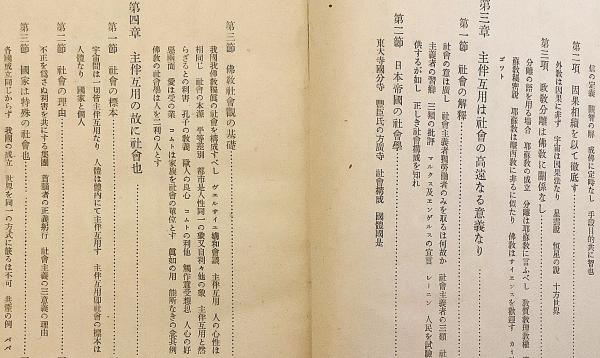 信の定義 觀智の解 戒律に定時なし 手段目的共に智也
第二項 因果相續を以て徹底す
外敎は因果に非ず 宇宙は因果法なり 星雲說 恒星の說 十方世界
第三項 政敎分離は佛敎に關係なし
分離の語を用る場合 耶蘇敎の成立 分離は耶蘇敎に言ふべし 敎質敎理敎權
蘇敎權密說 耶蘇敎は釀西敎に非るに似たり 佛敎はサイエンスを歡迎す
ゴット
第三章 主伴互用は社會の高遠なる意義なり
第一節 社會の解釋
社會の意は廣し 社會主義者獨勞働者のみを取るは何故か 社會主義者の三類 社
主義者の習癖 三類の批評 マルクス及エンゲルスの宣言 レーニン 人民を試驗
供するが如し 正しき社會構成を知れ
第二節 日本帝國の社會學
東大寺國分寺 豐臣氏の方廣寺 社會構成 國體國是
第三節 佛敎社會觀の基礎
我國我佛敎獨眞の社會を構成すべし ヴェルサイユ講和會議 主伴互用 人の心性は
相同じ 社會の本源 平等差別 都市是人性同一の象又自利々他の象 主伴互用と然
らざるとの利害 孔子の敎義 歐人の良心 コムトの利他 觸作意受想思 人心の好
惡兩面 愛は受の業 コムトは家族を社會の單位とす 眞如の用 能所なきの念其例
佛敎の社會學は人を三利の人とす
第四章 主伴互用の故に社會也
第一節 社會の標本
宇宙間は一切皆主伴互用なり 人體は體內にて主伴互用す 主伴互用卽社會の標本は
人體なり 國家と個人
第二節 社會の理由
不正を爲さぬ利害を共にする集團 首腦者の正義躬行 社會主義の三意義の理由
第三節 國家は特殊の社會也
各國成立同じからず 我國の成立 世界を同一の方式に嵌るは不可 共產の例